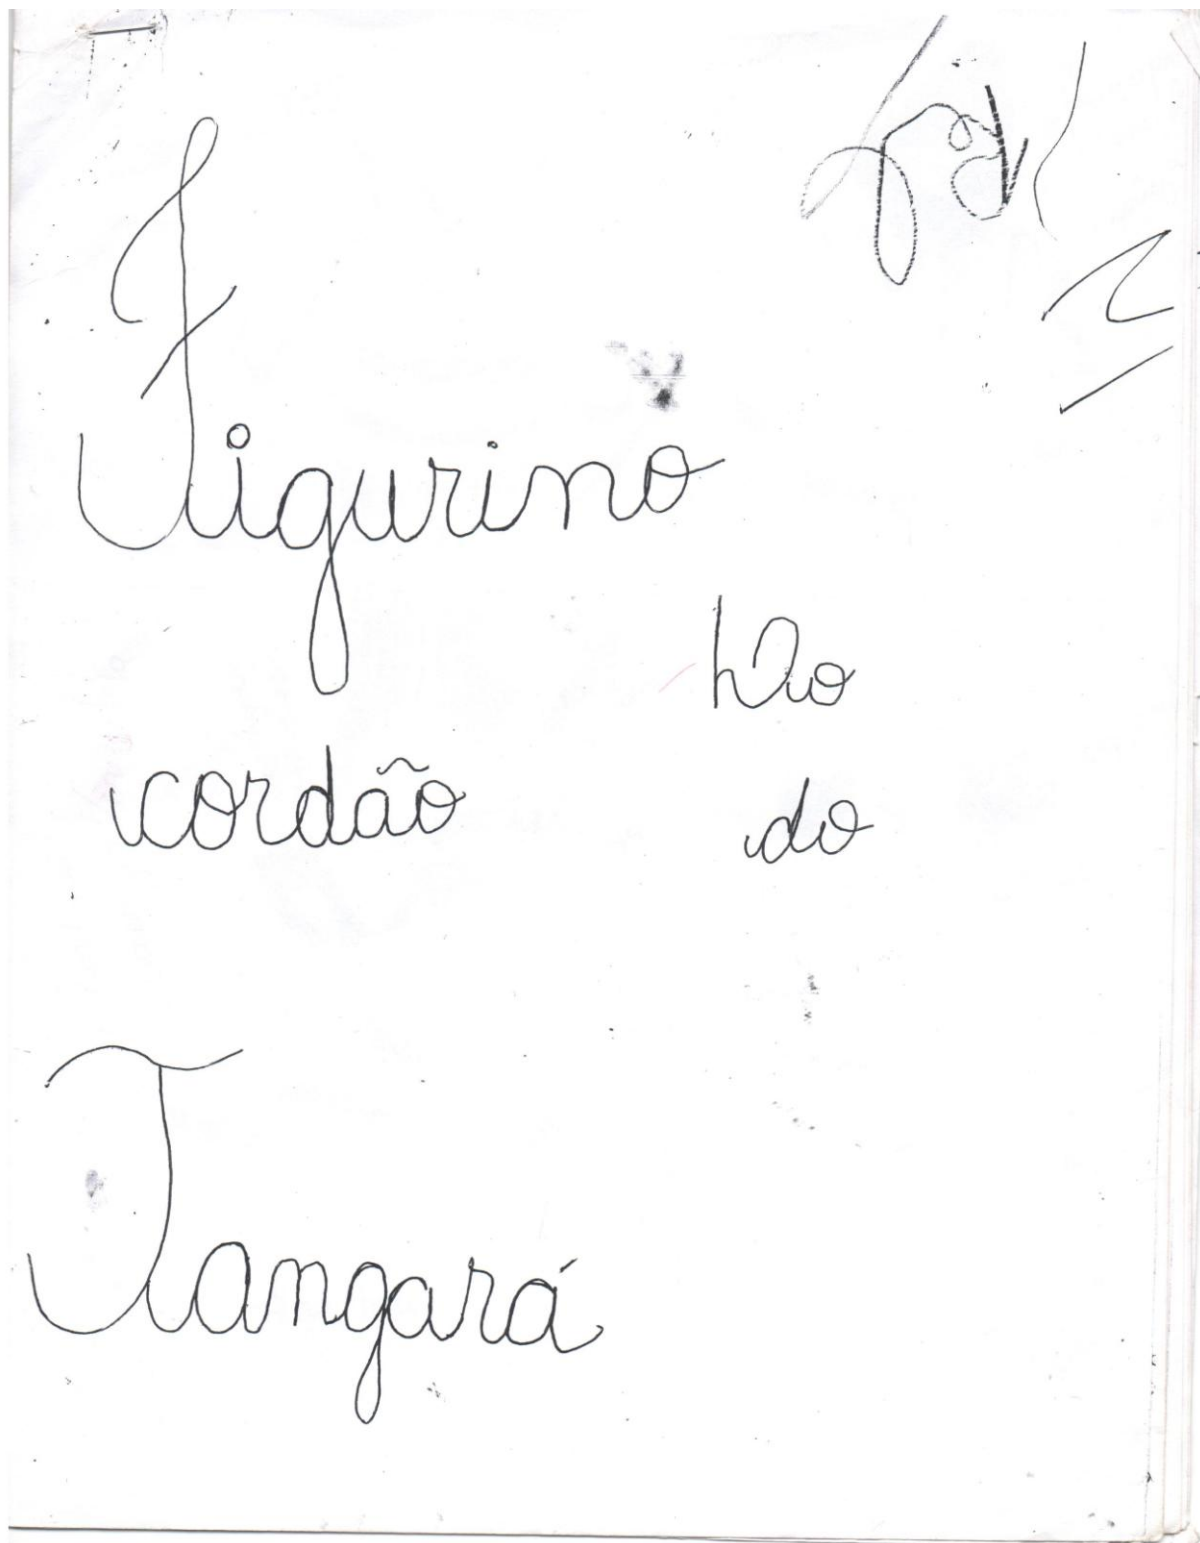 Figurino
Do
cordão do
Tangará